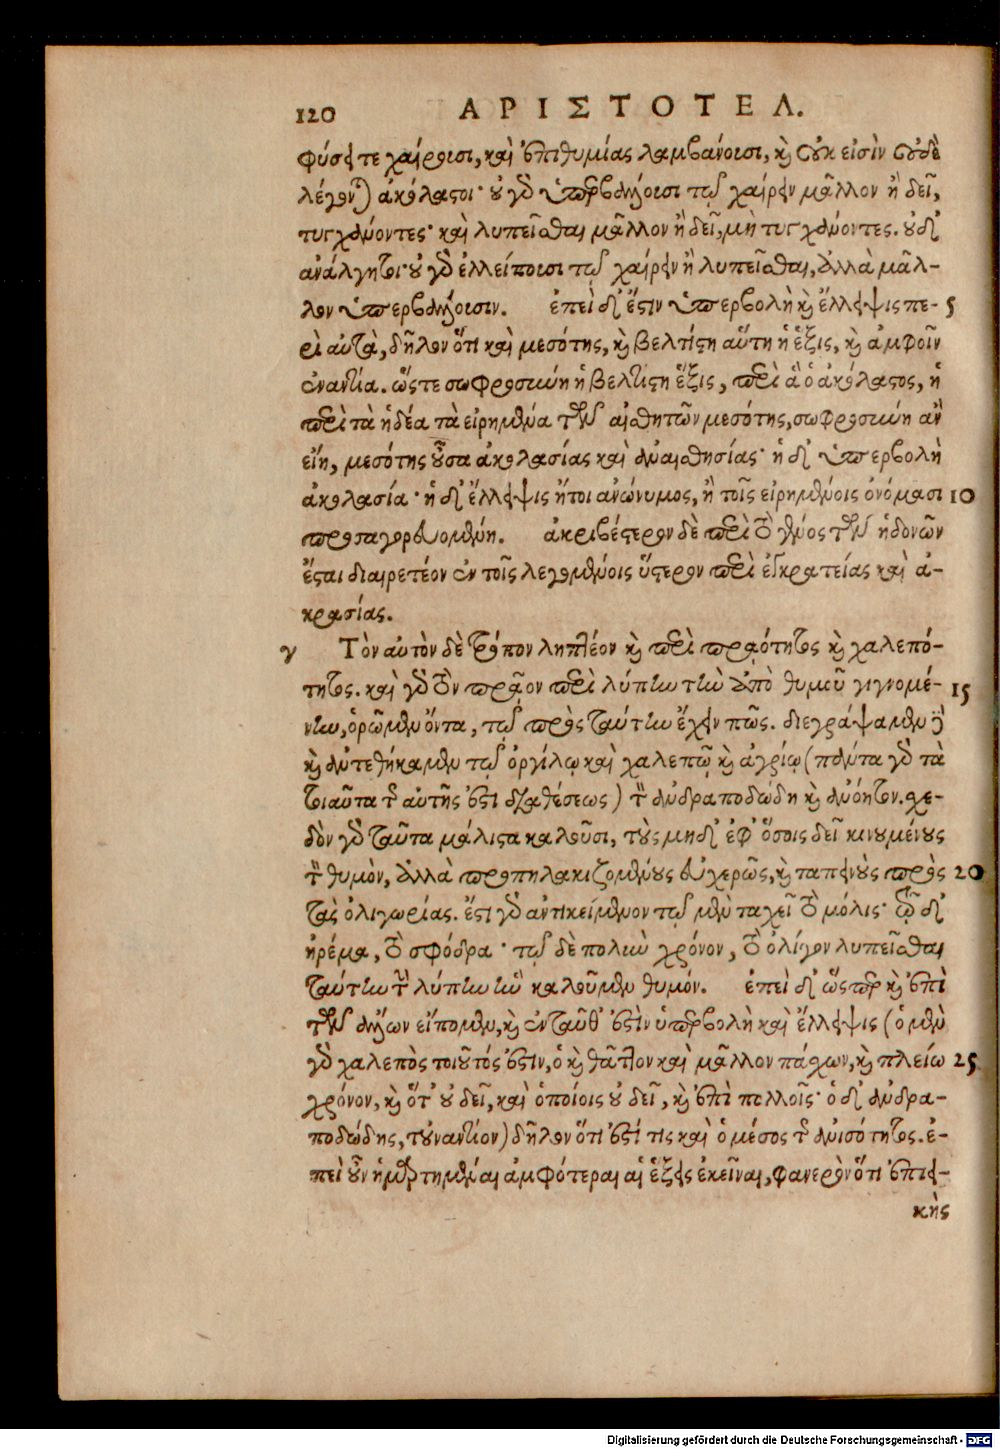 120 ΑΡΙΣΤΟΤΕΛ.
φύσει τε χαίρουσι, καὶ ἐπιθυμίας λαμβάνουσι, καὶ οὐκ εἰσὶν οὐδὲ
λέγονται ἀκόλαστοι· οὐ γὰρ ὑπερβάλλουσι τῷ χαίρειν μᾶλλον ἢ δεῖ,
τυγχάνοντες· καὶ λυπεῖσθαι μᾶλλον ἢ δεῖ, μὴ τυγχάνοντες. οὐδ'
ἀνάλγητοι· οὐ γὰρ ἐλλείπουσι τῷ χαίρειν ἢ λυπεῖσθαι, ἀλλὰ μᾶλ-
λον ὑπερβάλλουσιν. ἐπεὶ δ' ἔστιν ὑπερβολὴ καὶ ἔλλειψις πε- 5
ρὶ αὐτὰ, δῆλον ὅτι καὶ μεσότης, καὶ βελτίστη αὕτη ἡ ἕξις, καὶ ἀμφοῖν
ἐναντία. ὥστε σωφροσύνη ἡ βελτίστη ἕξις, περὶ ἃ ὁ ἀκόλαστος, ἡ
περὶ τὰ ἡδέα τὰ εἰρημένα τῶν αἰσθητῶν μεσότης, σωφροσύνη ἂν
εἴη, μεσότης οὖσα ἀκολασίας καὶ ἀναισθησίας· ἡ δ' ὑπερβολὴ
ἀκολασία· ἡ δ' ἔλλειψις ἤτοι ἀνώνυμος, ἢ τοῖς εἰρημένοις ὀνόμασι 10
προσαγορευομένη. ἀκριβέστερον δὲ περὶ τοῦ γένους τῶν ἡδονῶν
ἔσται διαιρετέον ἐν τοῖς λεγομένοις ὕστερον περὶ ἐγκρατείας καὶ ἀ-
κρασίας.
γ Τὸν αὐτὸν δὲ τρόπον ληπτέον καὶ περὶ πραότητος καὶ χαλεπό-
τητος. καὶ γὰρ τὸν πρᾶον περὶ λύπην τὴν ἀπὸ θυμοῦ γιγνομέ- 15
νην, ὁρῶμεν ὄντα, τῷ πρὸς ταύτην ἔχειν πῶς. διεγράψαμεν δὲ
καὶ ἀντεθήκαμεν τῷ ὀργίλῳ καὶ χαλεπῷ καὶ ἀγρίῳ (πάντα γὰρ τὰ
τοιαῦτα τῆς αὐτῆς ἐστι διαθέσεως) τὸν ἀνδραποδώδη καὶ ἀνόητον. σχε-
δὸν γὰρ ταῦτα μάλιστα καλοῦσι, τοὺς μηδ' ἐφ' ὅσοις δεῖ κινουμένους
τὸν θυμὸν, ἀλλὰ προπηλακιζομένους εὐχερῶς, καὶ ταπεινοὺς πρὸς 20
τὰς ὀλιγωρίας. ἔστι γὰρ ἀντικείμενον τῷ μὲν ταχεῖ τὸ μόλις· τῷ δ'
ἠρέμα, τὸ σφόδρα· τῷ δὲ πολὺν χρόνον, τὸ ὀλίγον λυπεῖσθαι
ταύτην τὴν λύπην ἣν καλοῦμεν θυμόν. ἐπεὶ δ' ὥσπερ καὶ ἐπὶ
τῶν ἄλλων εἴπομεν, καὶ ἐνταῦθ' ἐστὶν ὑπερβολὴ καὶ ἔλλειψις (ὁ μὲν
γὰρ χαλεπὸς τοιοῦτός ἐστιν, ὁ καὶ θᾶττον καὶ μᾶλλον πάσχων, καὶ πλείω 25
χρόνον, καὶ ὅτ' οὐ δεῖ, καὶ ὁποίοις οὐ δεῖ, καὶ ἐπὶ πολλοῖς· ὁ δ' ἀνδρα-
ποδώδης, τοὐναντίον) δῆλον ὅτι ἐστί τις καὶ ὁ μέσος τῆς ἀνισότητος. ἐ-
πεὶ οὖν ἡμαρτημέναι ἀμφότεραι αἱ ἕξεις ἐκεῖναι, φανερὸν ὅτι ἐπιει-
κὴς
Digitalisierung gefördert durch die Deutsche Forschungsgemeinschaft - DFG